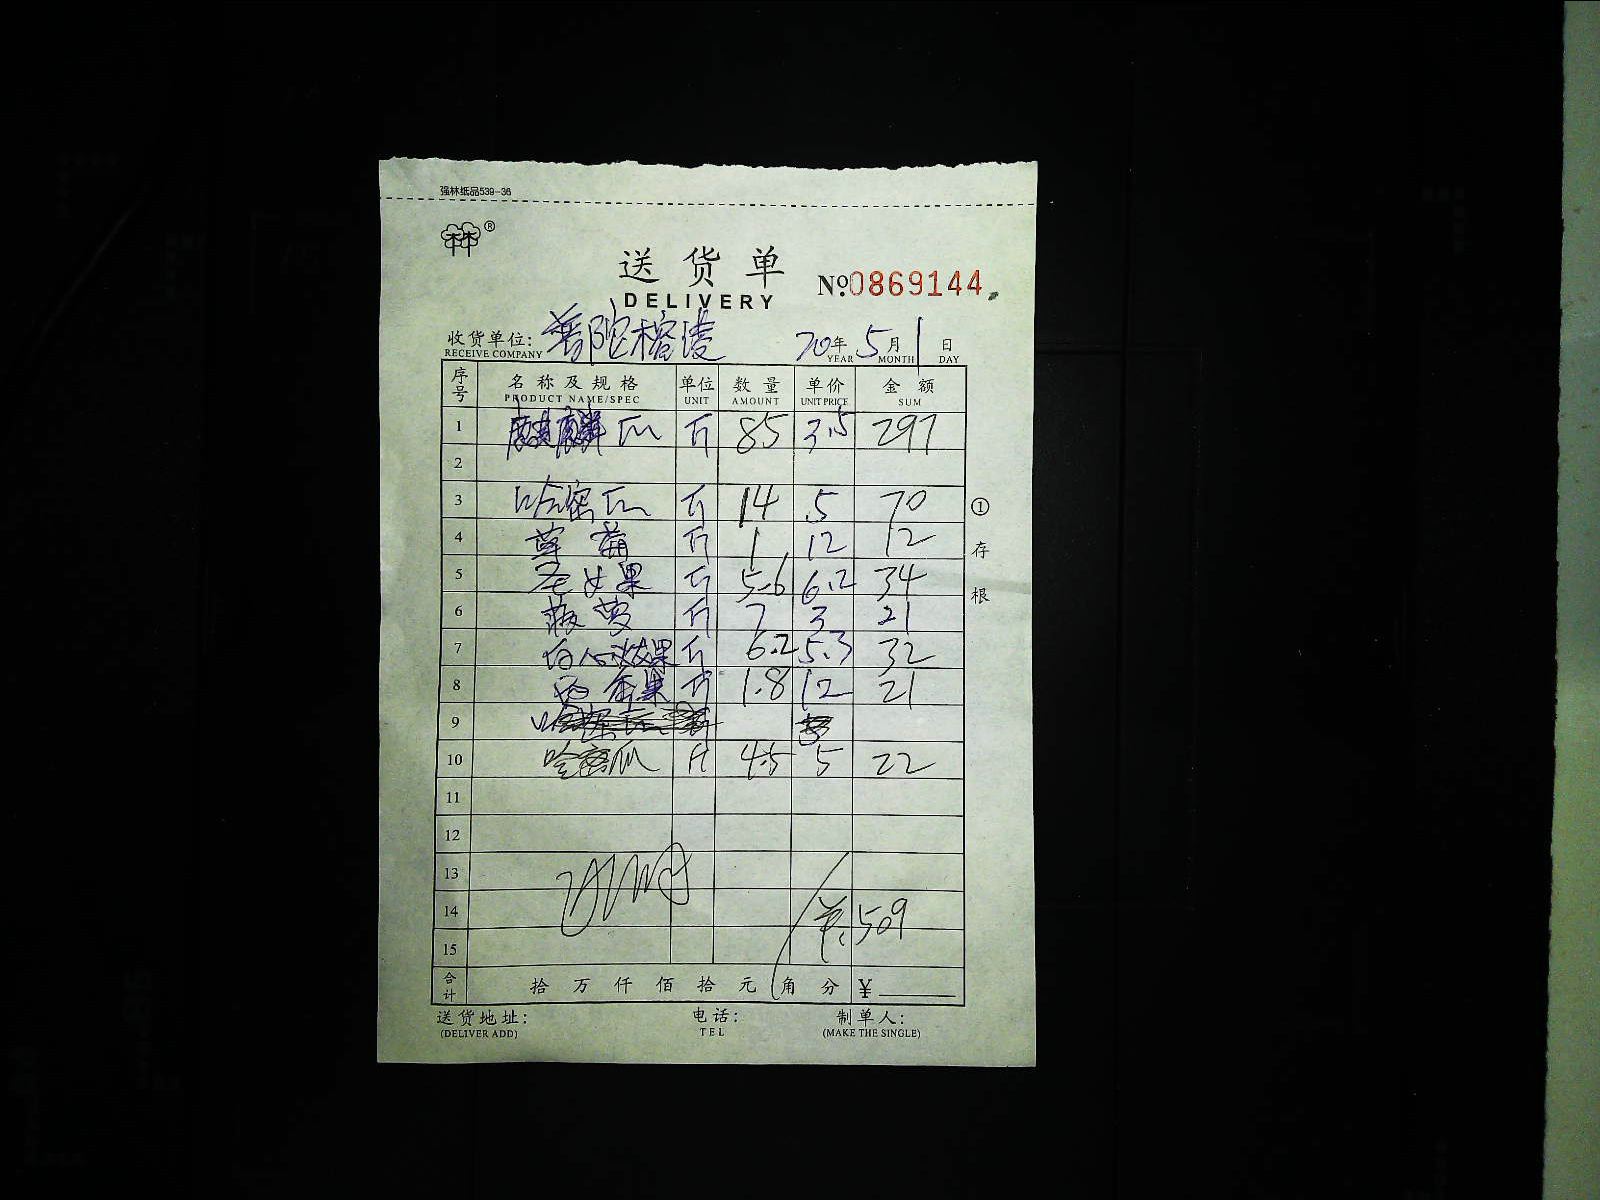 强林纸品539-36
林®
送货单
DELIVERY
№0869144
收货单位: 普陀榕港 20年5月1日
RECEIVE COMPANY YEAR MONTH DAY
序号 名称及规格 单位 数量 单价 金额
PRODUCT NAME/SPEC UNIT AMOUNT UNIT PRICE SUM
1 麒麟瓜 斤 85 3.5 297
2
3 哈密瓜 斤 14 5 70
4 草莓 斤 1 12 12
5 圣女果 斤 5.6 6.2 34
6 菠萝 斤 7 3 21
7 白心火龙果 斤 6.2 5.3 32
8 百香果 斤 1.8 12 21
9
10 哈密瓜 斤 4.5 5 22
11
12
13
14 509
15
合计 拾 万 仟 佰 拾 元 角 分 ¥
送货地址: 电话: 制单人:
(DELIVER ADD) TEL (MAKE THE SINGLE)
①存根